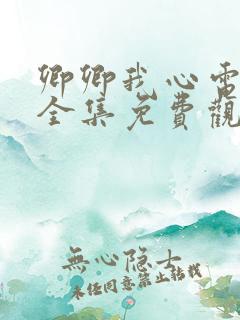 卿卿我心電
全集免費觀
無心隐士
未经同意禁止转载